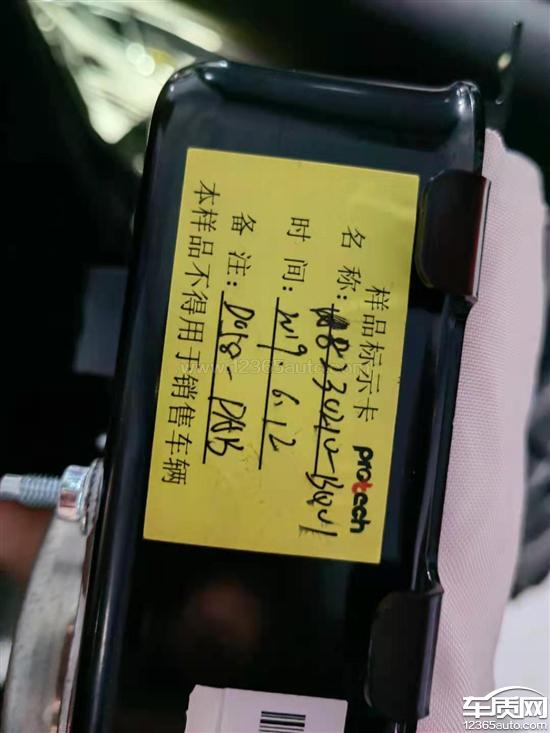 样品标示卡 protech
名 称:
时 间: 2019.6.12
备 注: D098-PAB
本样品不得用于销售车辆
www.12365auto.com
车质网
www.12365auto.com